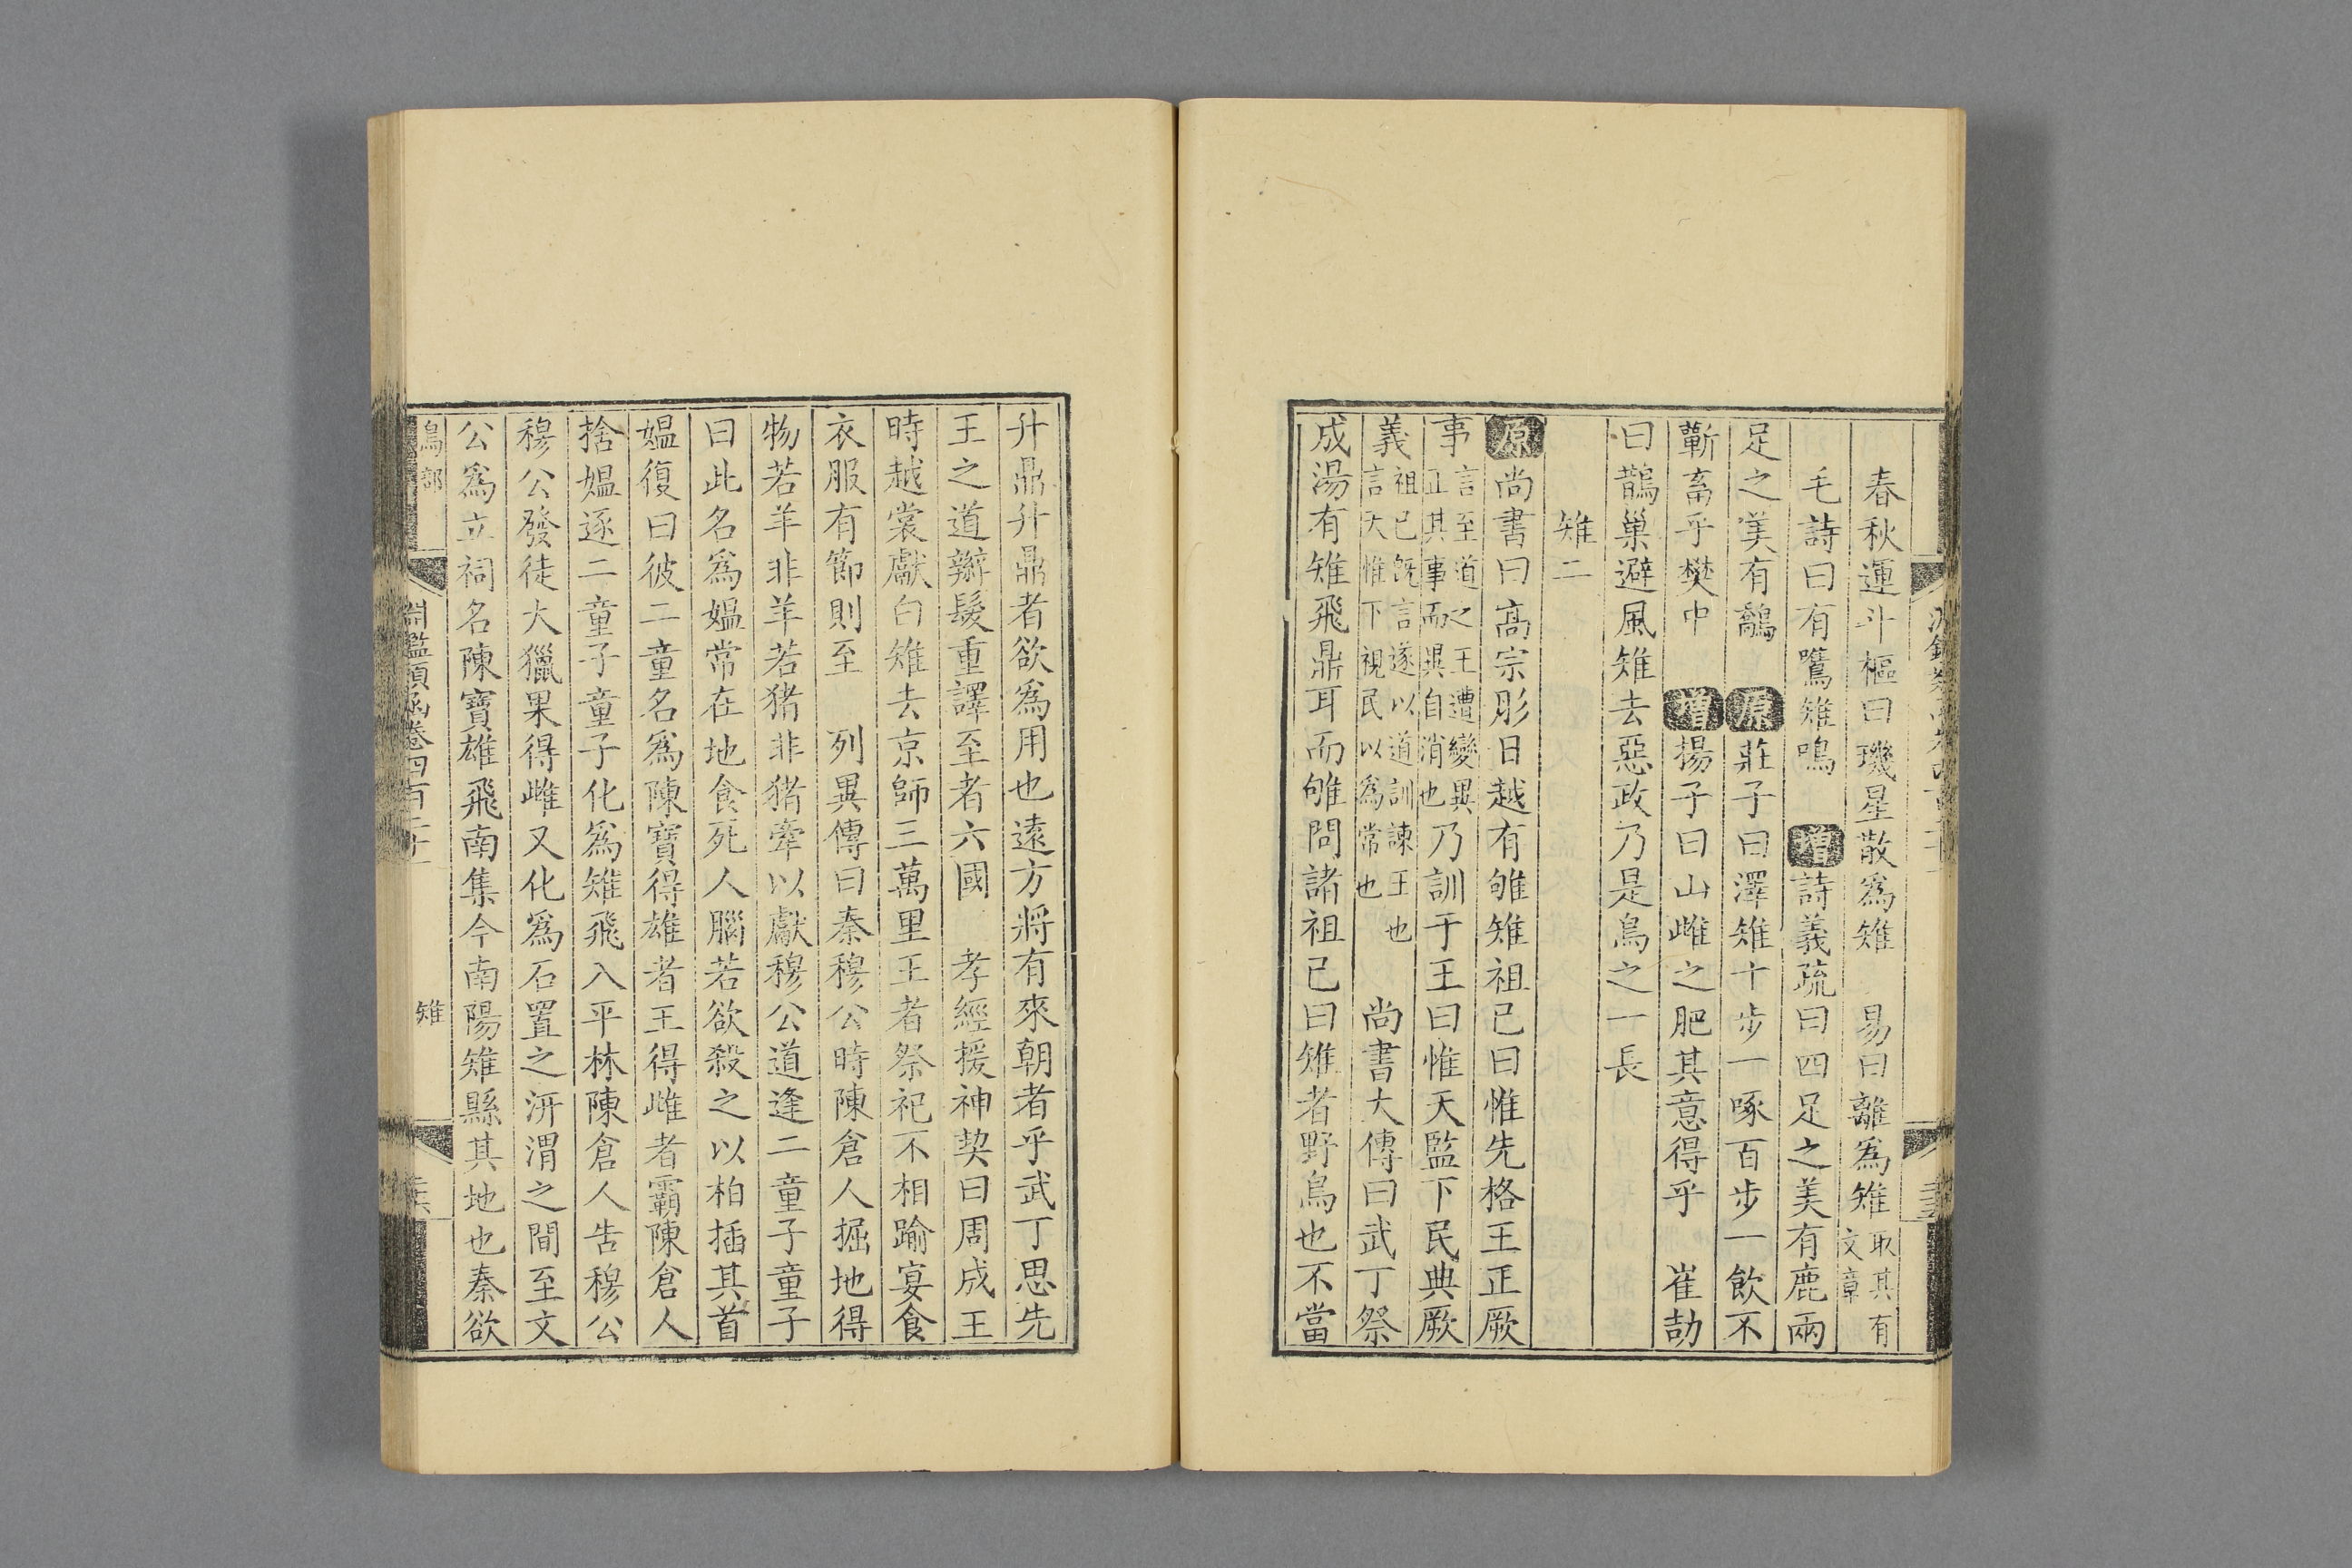 春秋運斗樞曰璣星散爲雉　易曰離爲雉取其有文章
毛詩曰有鷕雉鳴　增詩義疏曰四足之美有鹿兩
足之美有鷮　原莊子曰澤雉十步一啄百步一飲不
蘄畜乎樊中　增揚子曰山雌之肥其意得乎　崔劼
曰鵲巢避風雉去惡政乃是鳥之一長
雉二
原尚書曰高宗肜日越有雊雉祖己曰惟先格王正厥
事言至道之王遭變異正其事而異自消也乃訓于王曰惟天監下民典厥
義祖已旣言遂以道訓諫王也言天惟下視民以爲常也　尚書大傳曰武丁祭
成湯有雉飛鼎耳而雊問諸祖己曰雉者野鳥也不當
升鼎升鼎者欲爲用也遠方將有來朝者乎武丁思先
王之道辮髮重譯至者六國　孝經援神契曰周成王
時越裳獻白雉去京師三萬里王者祭祀不相踰宴食
衣服有節則至　列異傳曰秦穆公時陳倉人掘地得
物若羊非羊若猪非猪牽以獻穆公道逢二童子童子
曰此名爲媼常在地食死人腦若欲殺之以柏插其首
媼復曰彼二童名爲陳寶得雄者王得雌者霸陳倉人
捨媼逐二童子童子化爲雉飛入平林陳倉人告穆公
穆公發徒大獵果得雌又化爲石置之汧渭之間至文
公爲立祠名陳寶雄飛南集今南陽雉縣其地也秦欲
鳥部　淵鑑類函卷四百二十　雉